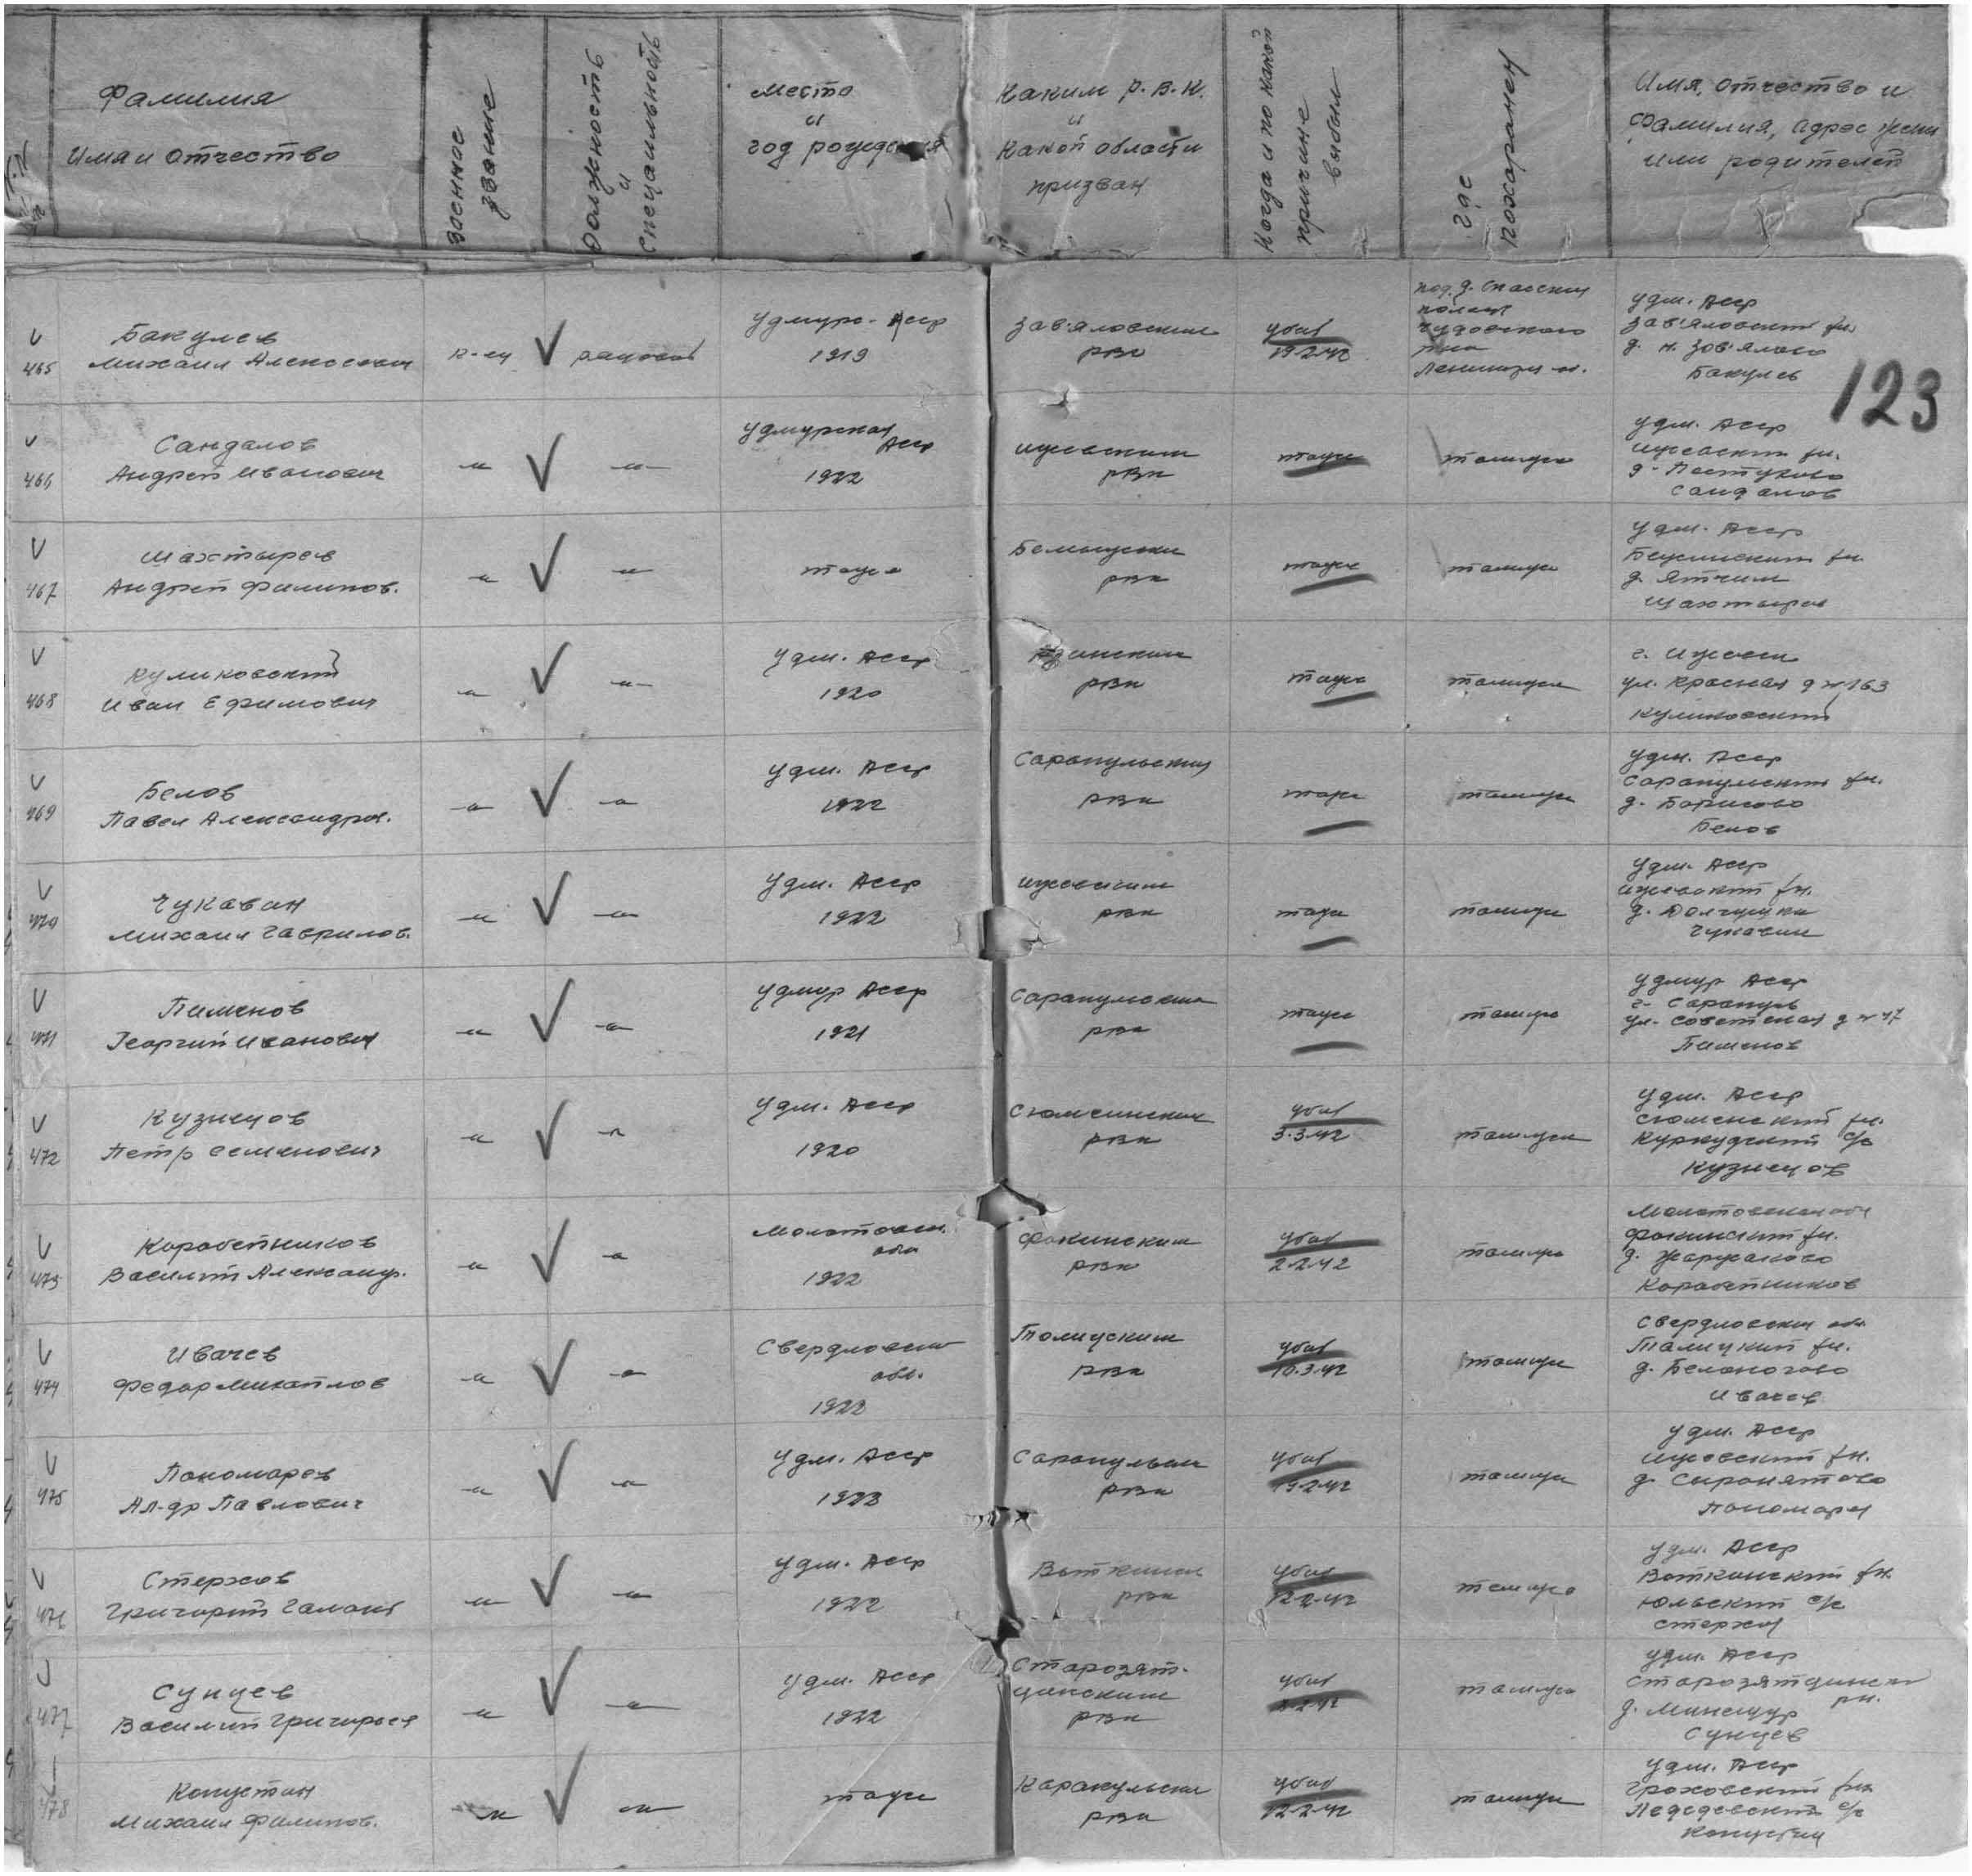 Фамилия
Имя и отчество
Военное
звание
Должность
и
специальность
Место
и
год рождения
Каким Р.В.К.
и
какой области
призван
Когда и по какой
причине
выбыл
Где
похоронен
Имя, отчество и
фамилия, адрес жены
или родителей
123
465
Бакулев
Михаил Алексеевич
к-ец
рядовой
Удмурт. АССР
1919
Зав'яловским
РВК
убит
19.2.42
под д. Спасская
полисть
Чудовского
р-на
Ленингр.
Удм. АССР
Зав'яловский рн.
д. н. Зав'ялово
Бакулев
466
Сандалов
Андрей Иванович
-"-
-"-
Удмурская
АССР
1922
Ижевским
РВК
тоже
там же
Удм. АССР
Ижевский рн.
д. Пастухово
Сандалов
467
Шахтырев
Андрей Филипов.
-"-
-"-
тоже
РВК
тоже
там же
Удм. АССР
рн.
д.
Шахтырев
468
Куликовский
Иван Ефимович
-"-
-"-
Удм. АССР
1920
РВК
тоже
там же
г. Ижевск
ул. Красная д № 163
Куликовский
469
Белов
Павел Александров.
-"-
-"-
Удм. АССР
1922
Сарапульским
РВК
тоже
там же
Удм. АССР
Сарапульский рн.
д. Борисово
Белов
470
Чукавин
Михаил Гаврилов.
-"-
-"-
Удм. АССР
1922
Ижевским
РВК
тоже
там же
Удм. АССР
Ижевский рн.
д.
Чукавин
471
Пименов
Георгий Иванович
-"-
-"-
Удмур АССР
1921
Сарапульским
РВК
тоже
там же
Удмур АССР
г. Сарапуль
ул. Советская д № 47
Пименов
472
Кузнецов
Петр Семенович
-"-
-"-
Удм. АССР
1920
Сюмсинским
РВК
убит
3.3.42
там же
Удм. АССР
Сюмснский рн.
с/с
Кузнецов
473
Коробейников
Василий Александр.
-"-
-"-
Молотовск.
обл
1922
Фокинским
РВК
убит
2.2.42
там же
Молотовская обл
Фокинский рн.
д.
Коробейников
474
Ивачев
Федор Михайлов
-"-
-"-
Свердловск
обл.
1922
Талицким
РВК
убит
10.3.42
там же
Свердловская обл
Талицкий рн.
д. Белоногово
Ивачев
475
Пономарев
Ал-др Павлович
-"-
-"-
Удм. АССР
1922
Сарапульск
РВК
убит
19.2.42
там же
Удм. АССР
Ижевский рн.
д.
Пономарев
476
Стерхов
Григорий
-"-
-"-
Удм. АССР
1922
Воткинск
РВК
убит
12.2.42
там же
Удм. АССР
Воткинский рн.
Юльский с/с
Стерхов
477
Сунцев
Василий Григорьев
-"-
-"-
Удм. АССР
1922
Старозят-
цинским
РВК
убит
2.2.42
там же
Удм. АССР
Старозятцинск
рн.
д.
Сунцев
478
Капустин
Михаил Филипов.
-"-
-"-
тоже
Каракульск
РВК
убит
12.2.42
там же
Удм. АССР
Граховский рн
с/с
Капустин